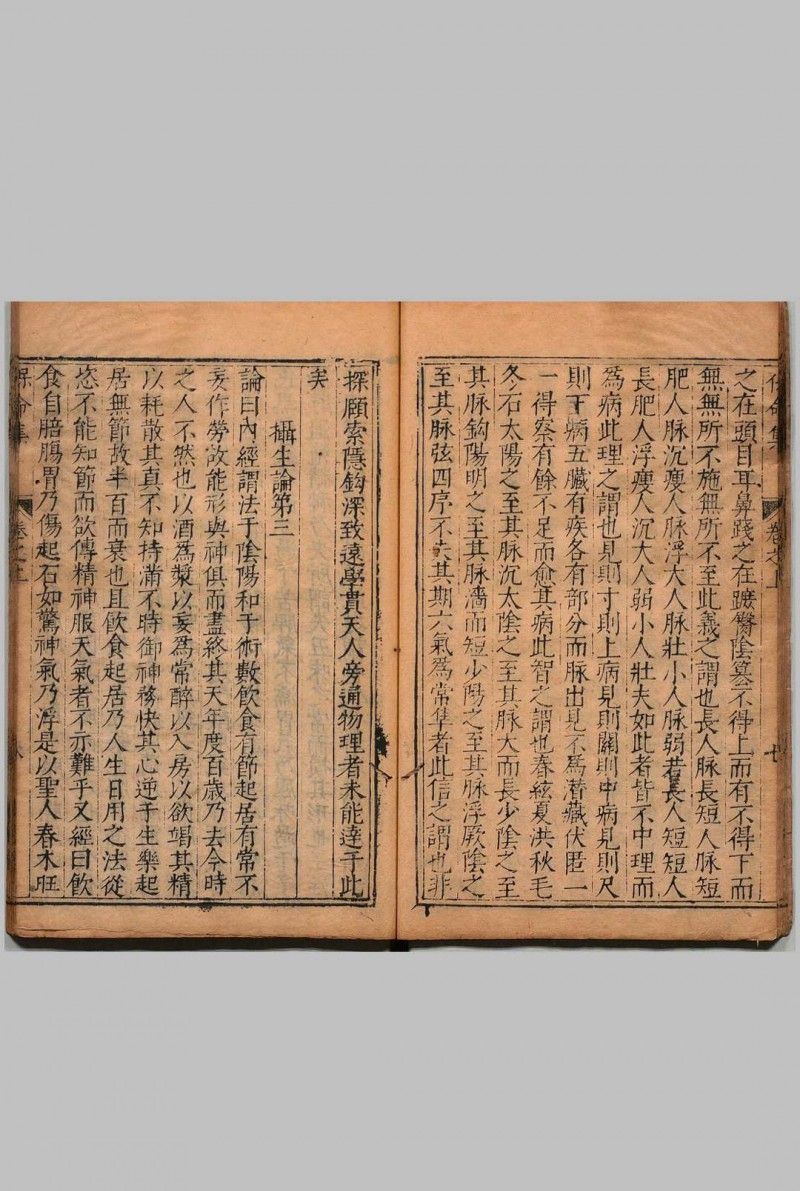 之在頭目耳鼻踐之在蹠臀陰墓不得上而有不得下而
無無所不施無所不至此義之謂也長人脉長短人脉短
肥人脉沉瘦人脉浮大人脉壯小人脉弱若長人短短人
長肥人浮瘦人沉大人弱小人壯夫如此者皆不中理而
為病此理之謂也見則寸則上病見則關則中病見則尺
則下病五臟有疾各有部分而脉出見不為潛藏伏匿一
一得察有餘不足而愈其病此智之謂也春絃夏洪秋毛
冬石太陽之至其脉沉太陰之至其脉大而長少陰之至
其脉鈎陽明之至其脉濇而短少陽之至其脉浮厥陰之
至其脉弦四序不失其期六氣為常隼者此信之謂也非
探賾索隱鈎深致遠學貫天人旁通物理者未能達于此
矣
攝生論第三
論曰內經謂法于陰陽和于術數飲食有節起居有常不
妄作勞故能形與神俱而盡終其天年度百歲乃去今時
之人不然也以酒為漿以妄為常醉以入房以欲竭其精
以耗散其真不知持滿不時御神務快其心逆于生樂起
居無節故半百而衰也且飲食起居乃人生日用之法從
恣不能知節而欲傳精神服天氣者不亦難乎又經曰飲
食自陪膓胃乃傷起石如驚神氣乃浮是以聖人春木旺
保命集
卷之上
八